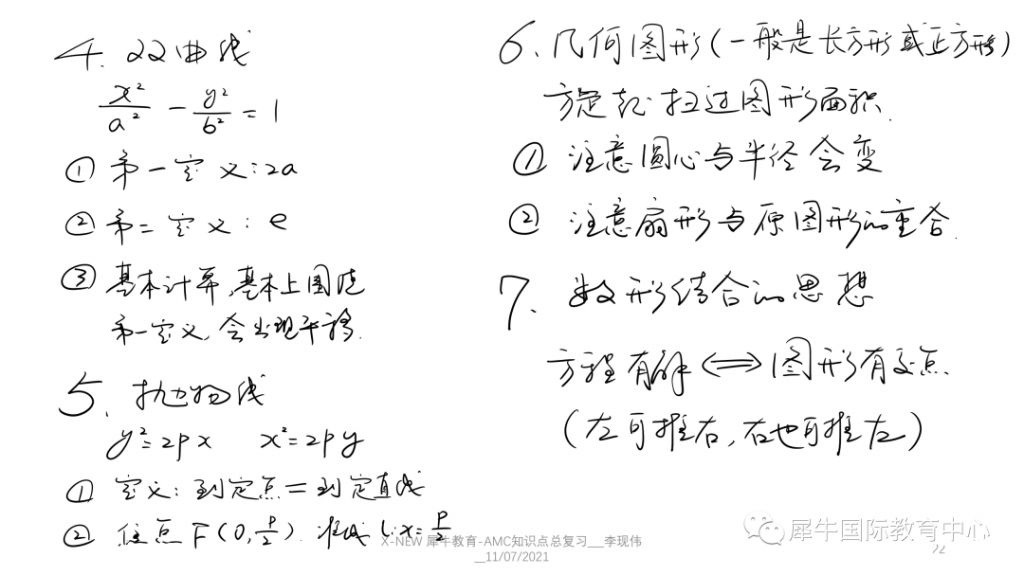 4. 双曲线
x²/a² - y²/b² = 1
① 第一定义:2a
② 第二定义:e
③ 基本计算,基本上围绕
第一定义,会出现平移.
5. 抛物线
y²=2px x²=2py
① 定义:到定点=到定直线
② 焦点F(0,p/2). 准线l:x=p/2
6. 几何图形(一般是长方形或正方形)
旋转扫过图形面积.
① 注意圆心与半径会变
② 注意扇形与原图形的重合.
7. 数形结合的思想
方程有解⟺图形有交点
(左可推右,右也可推左)
X-NEW 犀牛教育-AMC知识点总复习__李现伟
__11/07/2021
犀牛国际教育中心
22